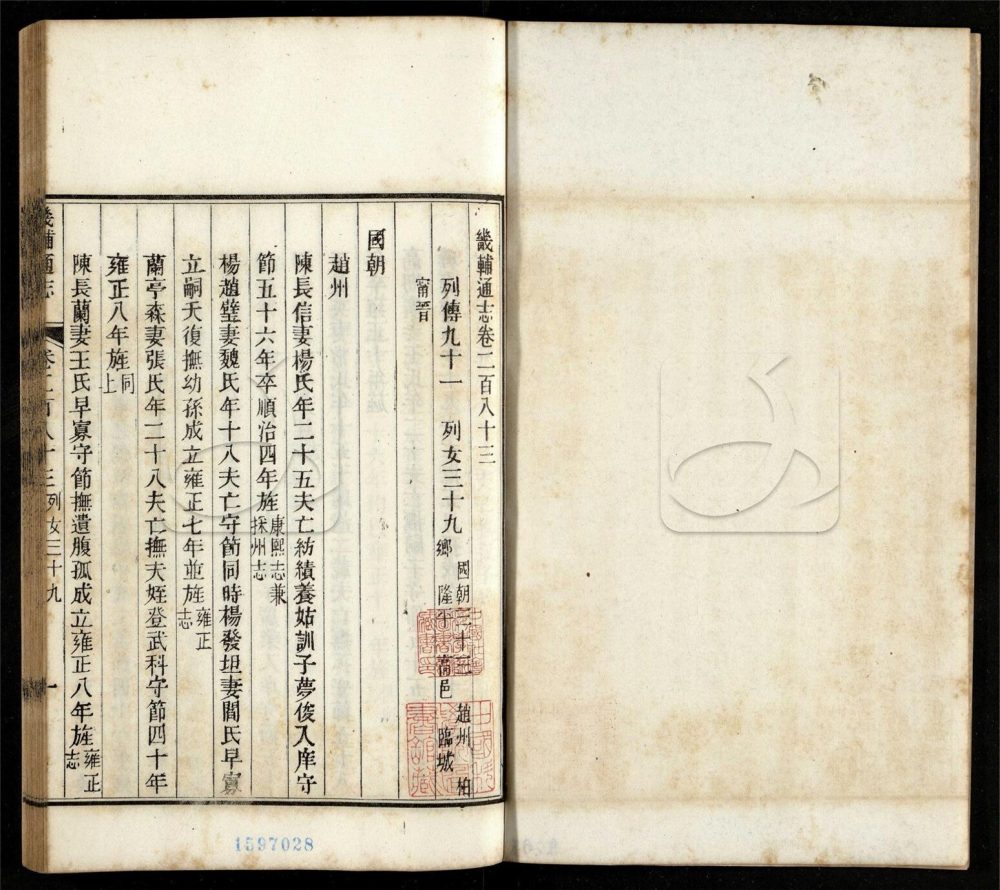 畿輔通志卷二百八十三
列傳九十一 列女三十九 國朝三十三 趙州 柏
鄉 隆平 高邑 臨城
甯晉
國朝
趙州
陳長信妻楊氏年二十五夫亡紡績養姑訓子夢俊入庠守
節五十六年卒順治四年旌康熙志兼
採州志
楊趙璧妻魏氏年十八夫亡守節同時楊發坦妻閻氏早寡
立嗣天復撫幼孫成立雍正七年並旌雍正
志
蘭亭森妻張氏年二十八夫亡撫夫姪登武科守節四十年
雍正八年旌同
上
陳長蘭妻王氏早寡守節撫遺腹孤成立雍正八年旌雍正
志
畿輔通志 卷二百八十三 列女三十九 一
1597028